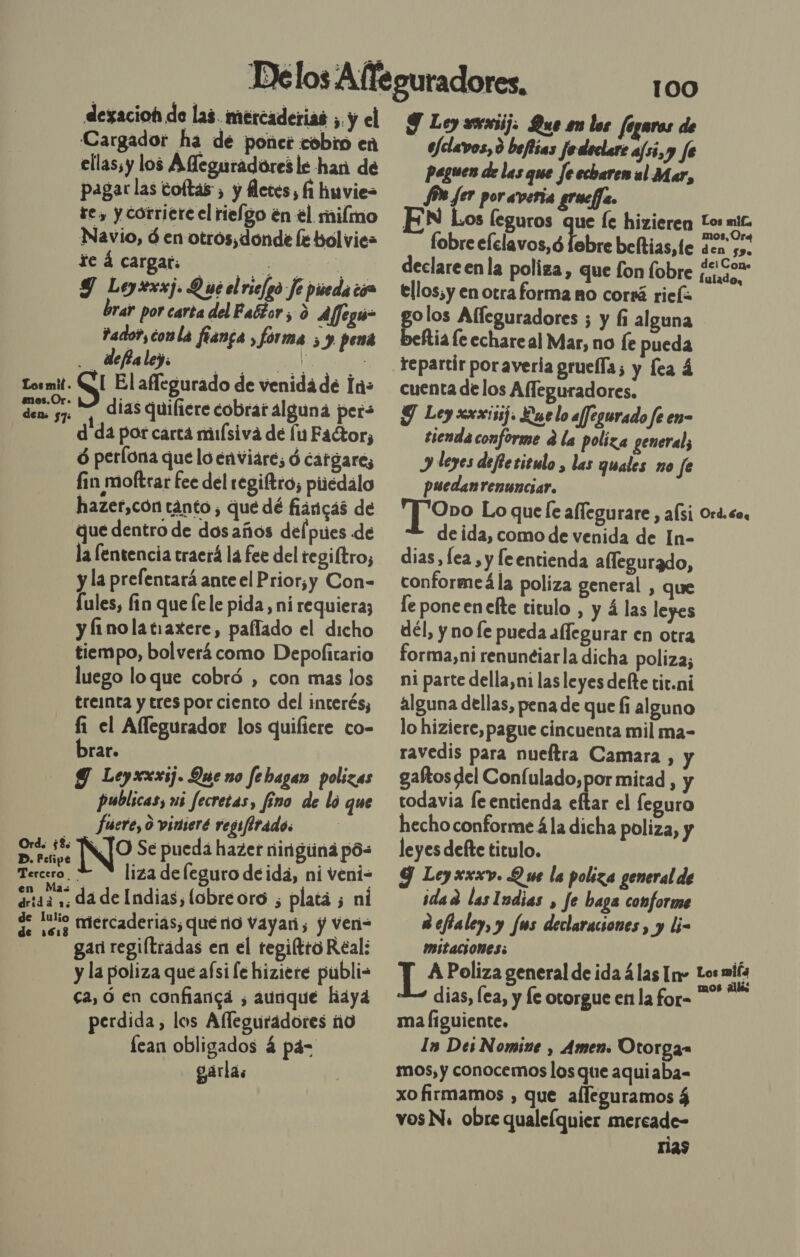 De los Asseguradores. 100
dexacion de las mercaderias ; y el
Cargador ha de poner cobro en
ellas, y los Asseguradores le han de
pagar las costas , y fletes, si huvie-
re, y corriere el riesgo en el mismo
Navio, ó en otros, donde se bolvie-
re á cargar.
¶ Ley xxxj. Que el riesgo se pueda co-
brar por carta del Factor, ò Assegu-
rador, con la fiança , forma , y pena
desta ley.
Los mis-
mos. Or-
den. 57.
SI El assegurado de venida de In-
dias quisiere cobrar alguna per-
dida por carta missiva de su Factor,
ó persona que lo enviare, ó cargare,
sin mostrar fee del registro, puedalo
hazer, con tanto , que dé fianças de
que dentro de dos años despues de
la sentencia traerá la fee del registro,
y la presentará ante el Prior, y Con-
sules, sin que se le pida , ni requiera;
y si no la traxere, passado el dicho
tiempo, bolverá como Depositario
luego lo que cobró , con mas los
treinta y tres por ciento del interés,
si el Assegurador los quisiere co-
brar.
¶ Ley xxxij. Que no se hagan polizas
publicas, ni secretas, sino de lo que
fuere, ò viniere registrado.
Ord. 58.
D. Felipe
Tercero
en Ma-
drid à 1.
de Iulio
de 1618
NO Se pueda hazer ninguna po-
liza de seguro de ida, ni veni-
da de Indias, sobre oro , plata , ni
mercaderias, que no vayan, y ven-
gan registradas en el registro Real:
y la poliza que assi se hiziere publi-
ca, ó en confiança , aunque haya
perdida , los Asseguradores no
sean obligados á pa-
garla.
¶ Ley xxxiij. Que en los seguros de
esclavos, ò bestias se declare assi, y se
paguen de las que se echaren al Mar,
sin ser por averia gruessa.
Los mis-
mos, Or-
den 59.
del Con-
sulado,
EN Los seguros que se hizieren
sobre esclavos, ó sobre bestias, se
declare en la poliza , que son sobre
ellos, y en otra forma no corrá ries-
go los Asseguradores ; y si alguna
bestia se echare al Mar, no se pueda
repartir por averia gruessa; y sea á
cuenta de los Asseguradores.
¶ Ley xxxiiij. Que lo assegurado se en-
tienda conforme à la poliza general,
y leyes deste titulo , las quales no se
puedan renunciar.
Ord. 60.
TODO Lo que se assegurare , assi
de ida, como de venida de In-
dias, sea , y se entienda assegurado,
conforme á la poliza general , que
se pone en este titulo , y á las leyes
dél, y no se pueda assegurar en otra
forma, ni renunciar la dicha poliza;
ni parte della, ni las leyes deste tit. ni
alguna dellas, pena de que si alguno
lo hiziere, pague cincuenta mil ma-
ravedis para nuestra Camara , y
gastos del Consulado, por mitad , y
todavia se entienda estar el seguro
hecho conforme á la dicha poliza, y
leyes deste titulo.
¶ Ley xxxv. Que la poliza general de
ida à las Indias , se haga conforme
à esta ley, y sus declaraciones , y li-
mitaciones.
Los mis-
mos allí
LA Poliza general de ida á las In-
dias, sea, y se otorgue en la for-
ma siguiente.
In Dei Nomine , Amen. Otorga-
mos, y conocemos los que aqui aba-
xo firmamos , que asseguramos á
vos N. obre qualesquier mercade-
rias